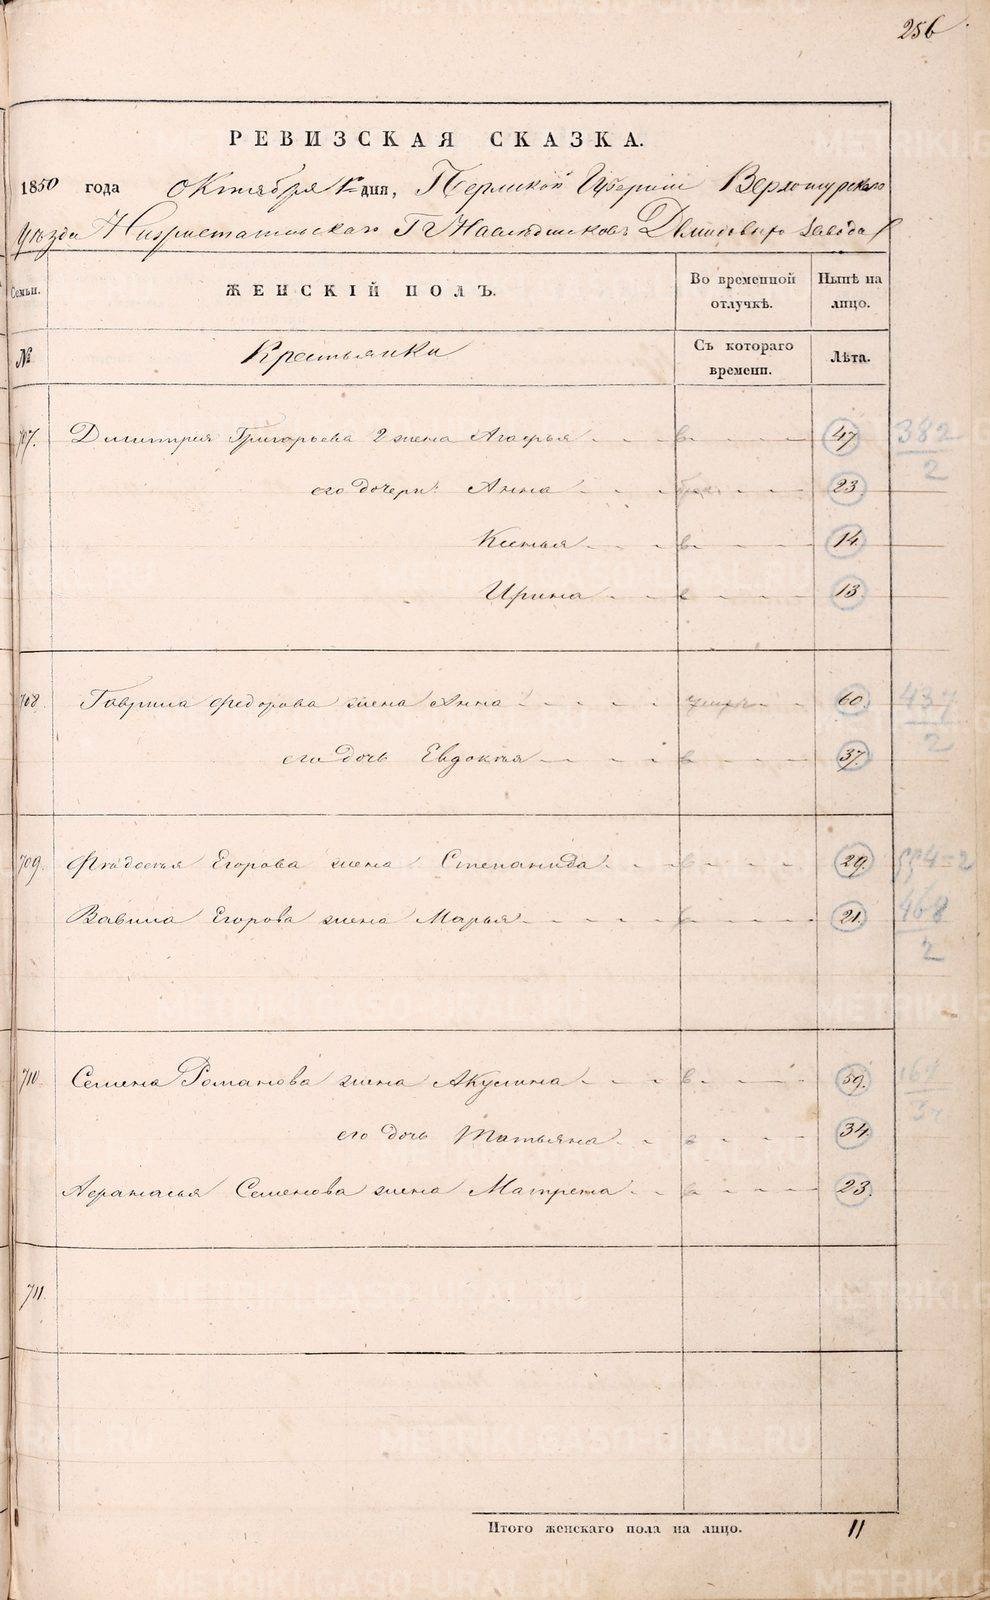 256
РЕВИЗСКАЯ СКАЗКА.
1850 года Октября 1 дня, Пермской Губернии Верхотурского
уезда Нижнетагильского Гг Наследников Демидовых завода
Семьи. ЖЕНСКІЙ ПОЛЪ. Во временной отлучкѣ. Нынѣ на лицо.
№ Крестьянки Съ котораго времени. Лѣта.
707. Димитрия Григорьева 2 жена Агафья 47 382/2
его дочери: Анна 23
Ксенья 14
Ирина 13
708. Гаврила Федорова жена Анна 60. 437/2
его дочь Евдокѣя 37.
709. Федосѣя Егорова жена Степанида 29. 554=2
Вавила Егорова жена Марья 21. 468/2
710. Семена Романова жена Акулина 59.
его дочь Татьяна 34
Афанасья Семенова жена Матрена 23.
711.
Итого женскаго пола на лицо. 11
METRIKI.GASO-URAL.RU